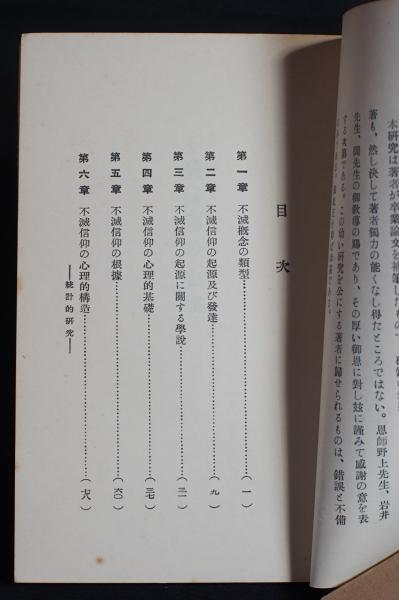 本研究は著者が卒業論文を補筆したもので
著も、然し決して著者獨力の能くなし得たところではない。恩師野上先生、岩井
先生、關先生の御敎導の賜であり、その厚い御恩に對し玆に謹みて感謝の意を表
する次第である。この幼い研究を公にする著者に歸せられるものは、錯誤と不備
目次
第一章 不滅概念の類型…………(一)
第二章 不滅信仰の起源及び發達…………(九)
第三章 不滅信仰の起源に關する學說…………(二一)
第四章 不滅信仰の心理的基礎…………(三七)
第五章 不滅信仰の根據…………(六〇)
第六章 不滅信仰の心理的構造…………(七八)
――統計的硏究――